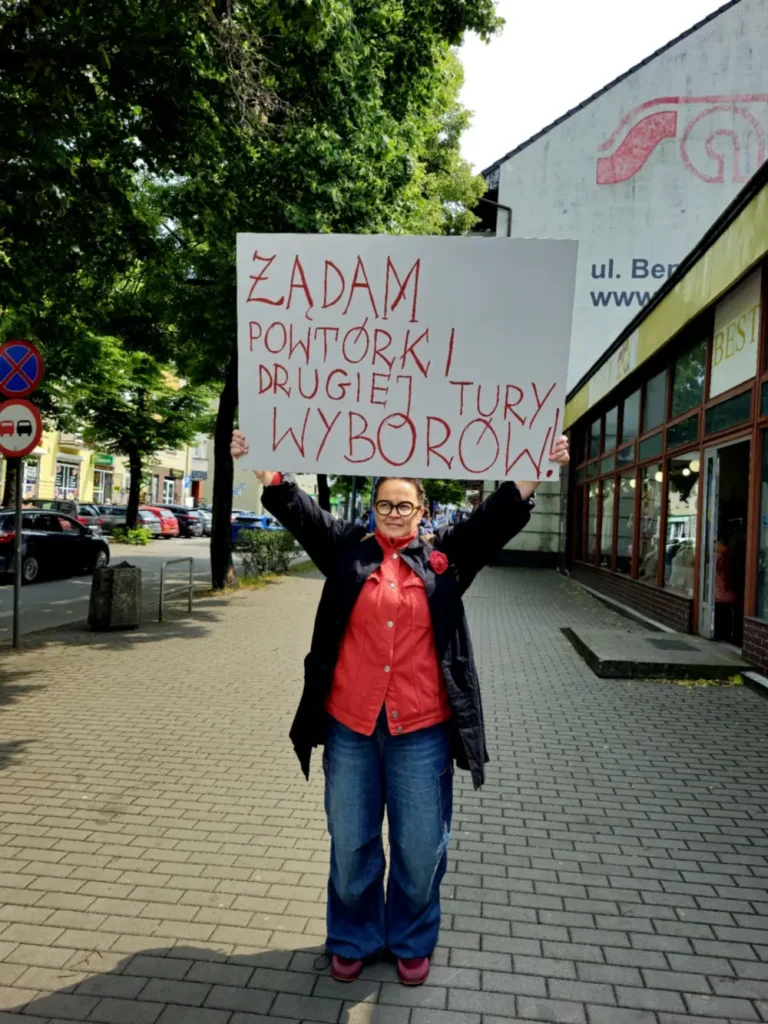 ŻĄDAM
POWTÓRKI
DRUGIEJ TURY
WYBORÓW!
ul. Ben
www.
BEST